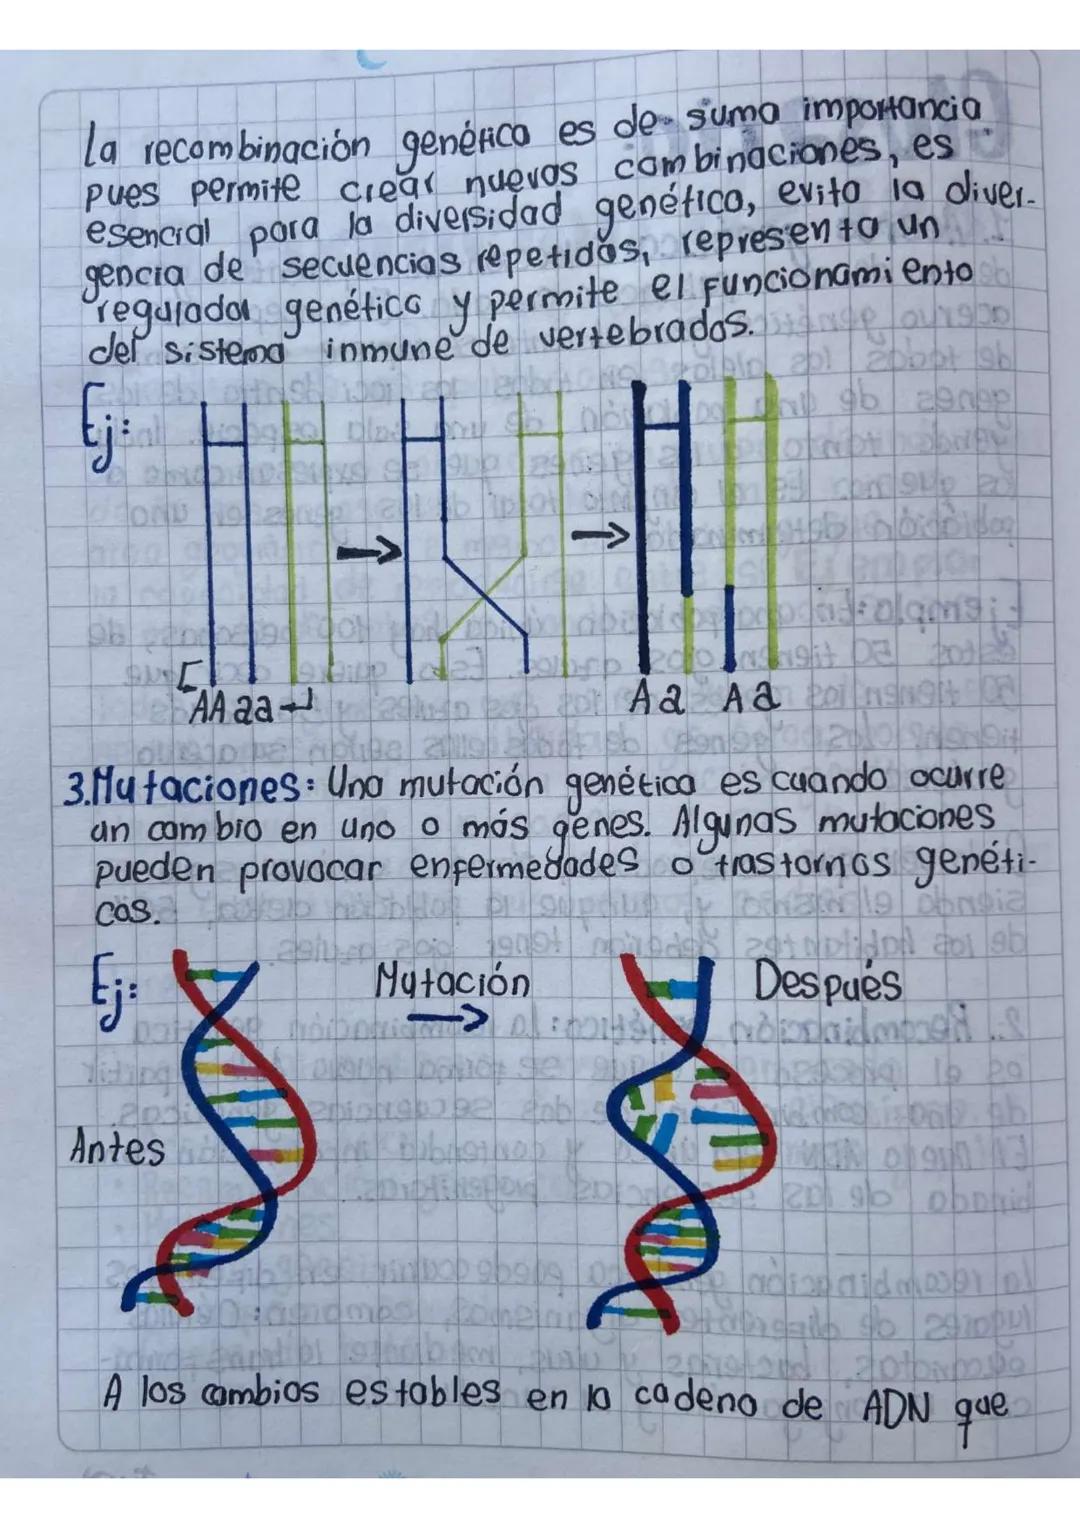 La recombinación genética es de suma importancia
pues permite crear nuevas combinaciones, es
esencial para la diversidad genética, evita la diver-
gencia de secuencias repetidas, representa un
regulador genético y permite el funcionamiento
del sistema inmune de vertebrados.
Ej:
AA aa
Aa Aa
3.Mutaciones: Una mutación genética es cuando ocurre
un cambio en uno o más genes. Algunas mutaciones
pueden provocar enfermedades o trastornos genéti-
cos.
Ej:
Mutación
Después
Antes
A los cambios estables en la cadena de ADN que